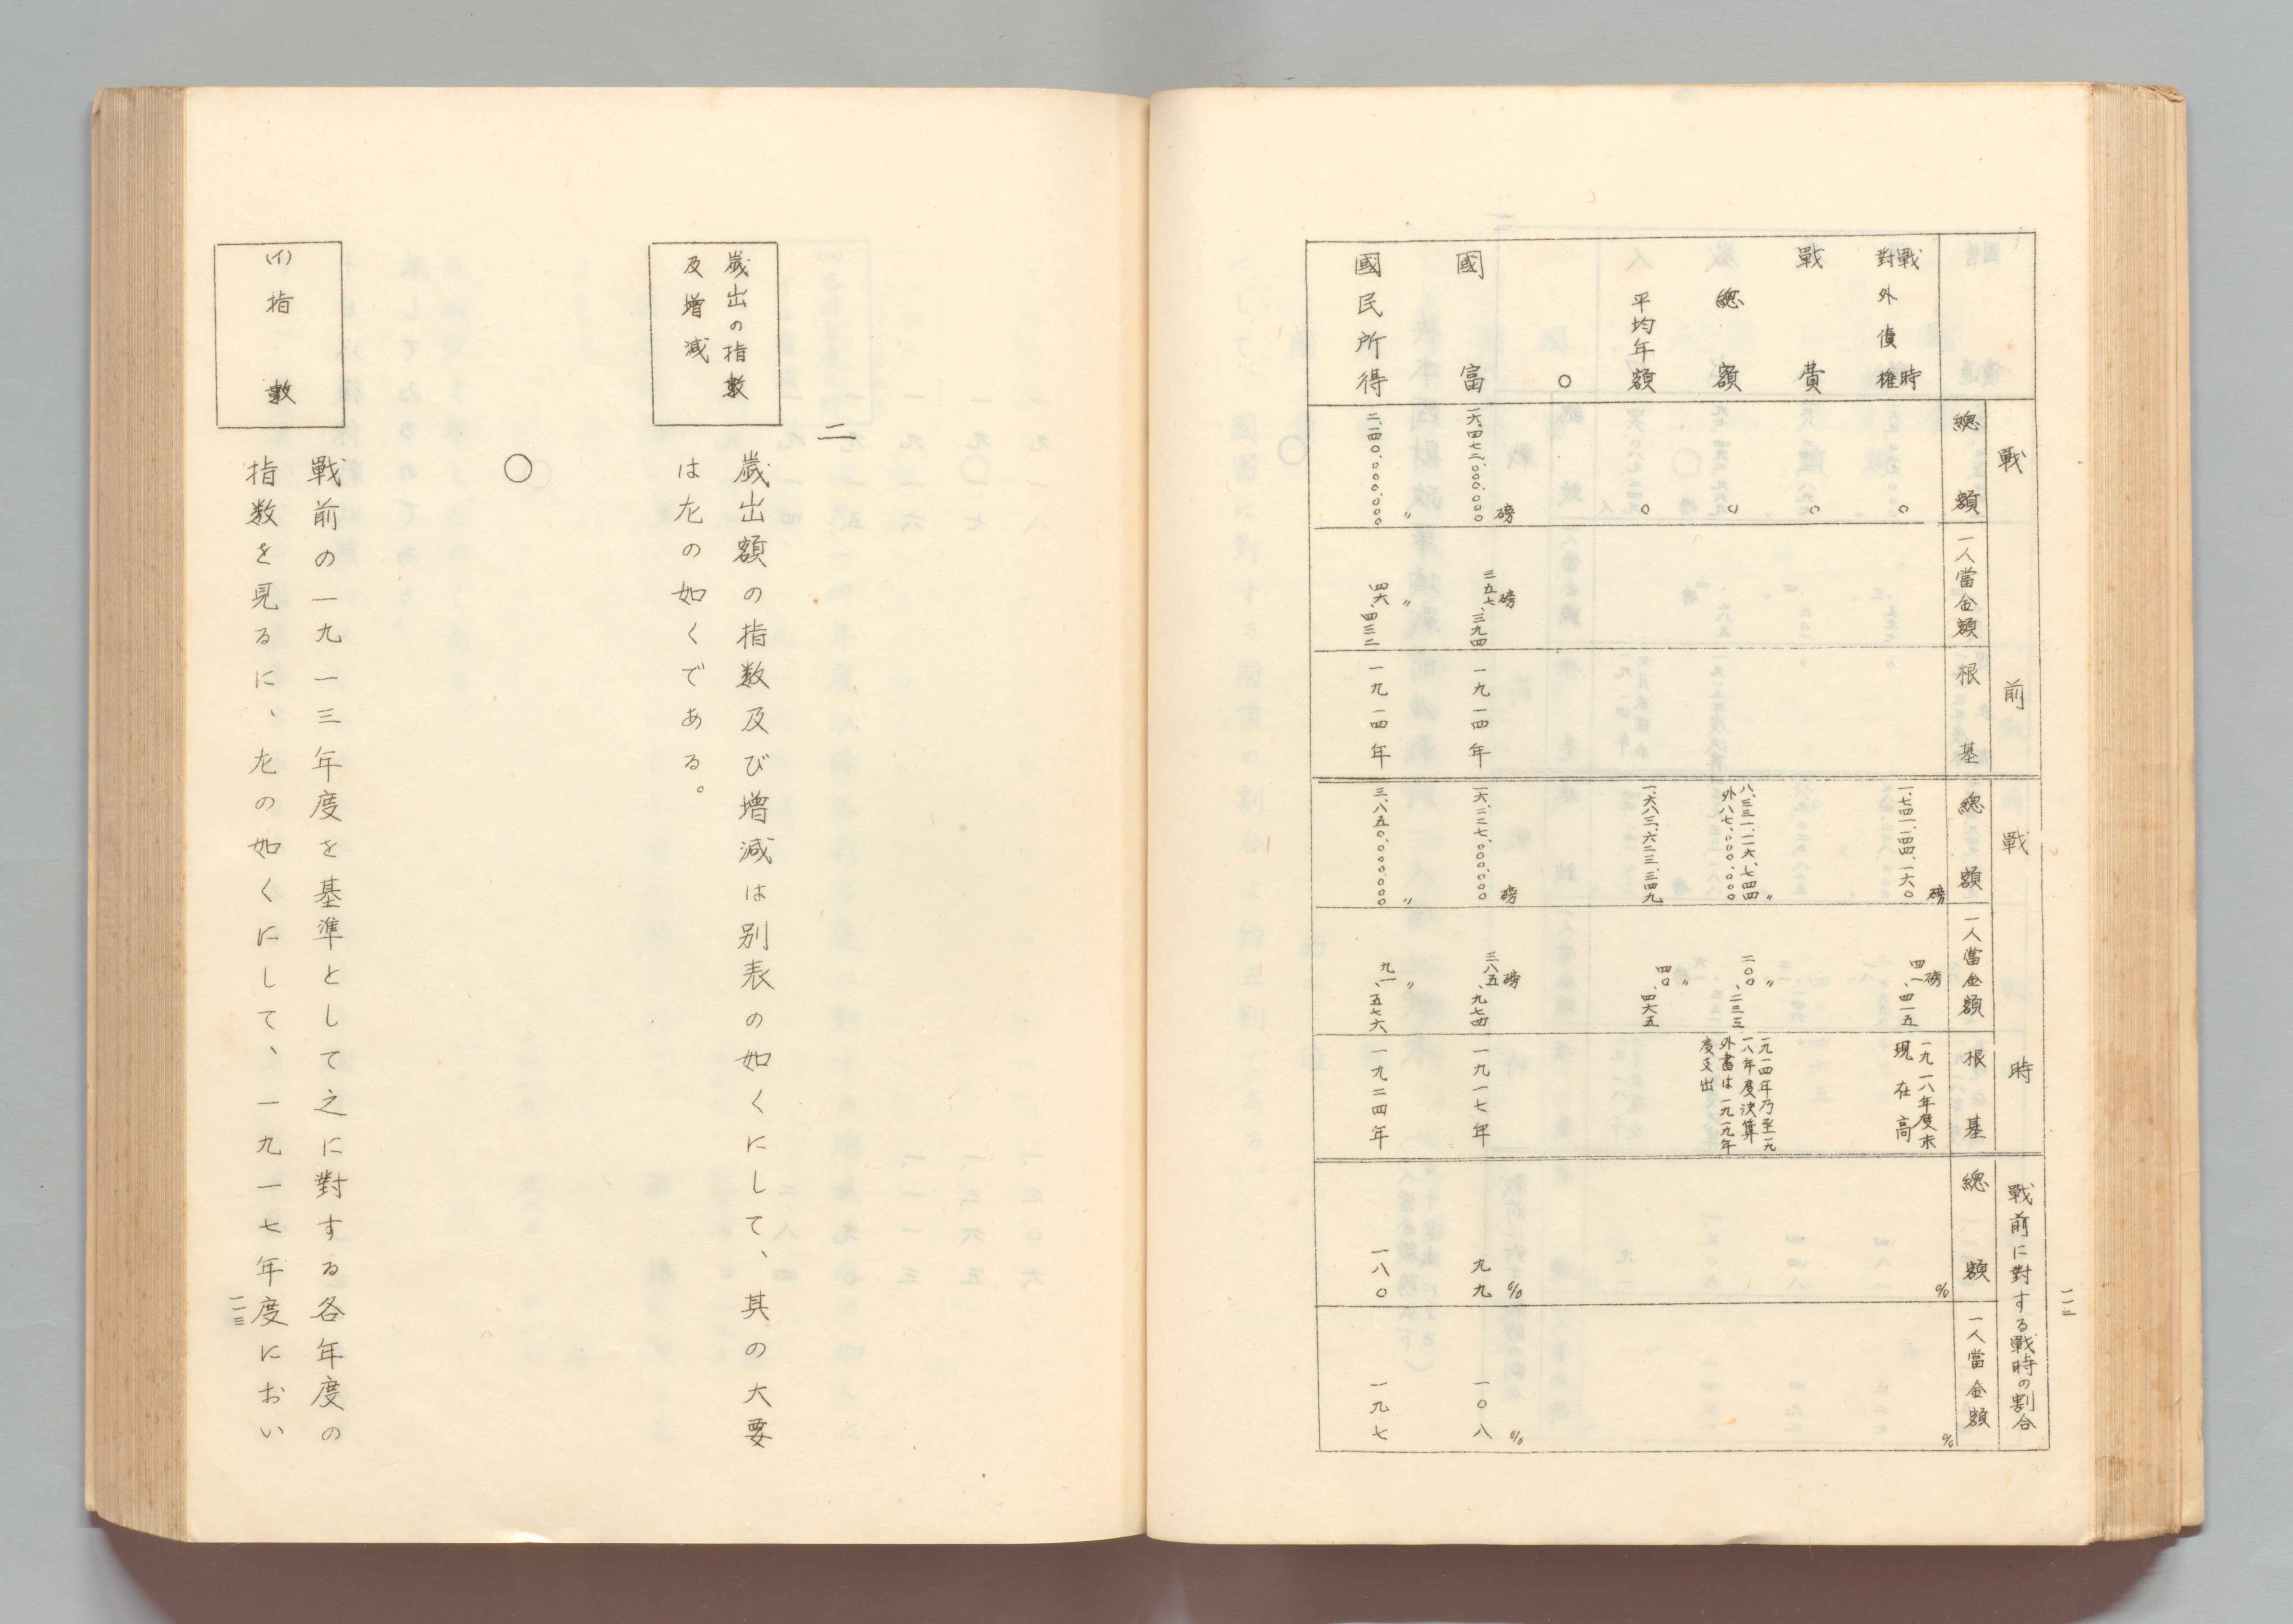 戰前
戰時
戰前に對する戰時の割合
總額
一人當金額
根基
總額
一人當金額
根基
總額
一人當金額
戰時對外債權
〇
一、七四一、一四四、一六〇磅
磅四一、四一五
一九一八年度末現在高
%
%
戰費
〇
總額
〇
八、三三一、二一六、七四四〃
外八七、〇〇〇、〇〇〇
二〇〇、二三三〃
一九一四年乃至一九一八年度決算
外書は一九一九年度支出
平均年額
〇
一、六八三、六二三、三四九
四〇、四六五〃
〇
國富
一六、四七二、〇〇〇、〇〇〇磅
三五七、三九四磅
一九一四年
一六、二二七、〇〇〇、〇〇〇磅
三八五、九七四磅
一九一七年
九九%
一〇八%
國民所得
二、一四〇、〇〇〇、〇〇〇〃
四六、四三二〃
一九一四年
三、八五〇、〇〇〇、〇〇〇〃
九一、五七六〃
一九二四年
一八〇
一九七
一一二
二
歳出の指數
及增減
歳出額の指数及び増減は別表の如くにして、其の大要
は左の如くである。
〇
(イ)指數
戰前の一九一三年度を基準として之に對する各年度の
指数を見るに、左の如くにして、一九一七年度におい
一一三